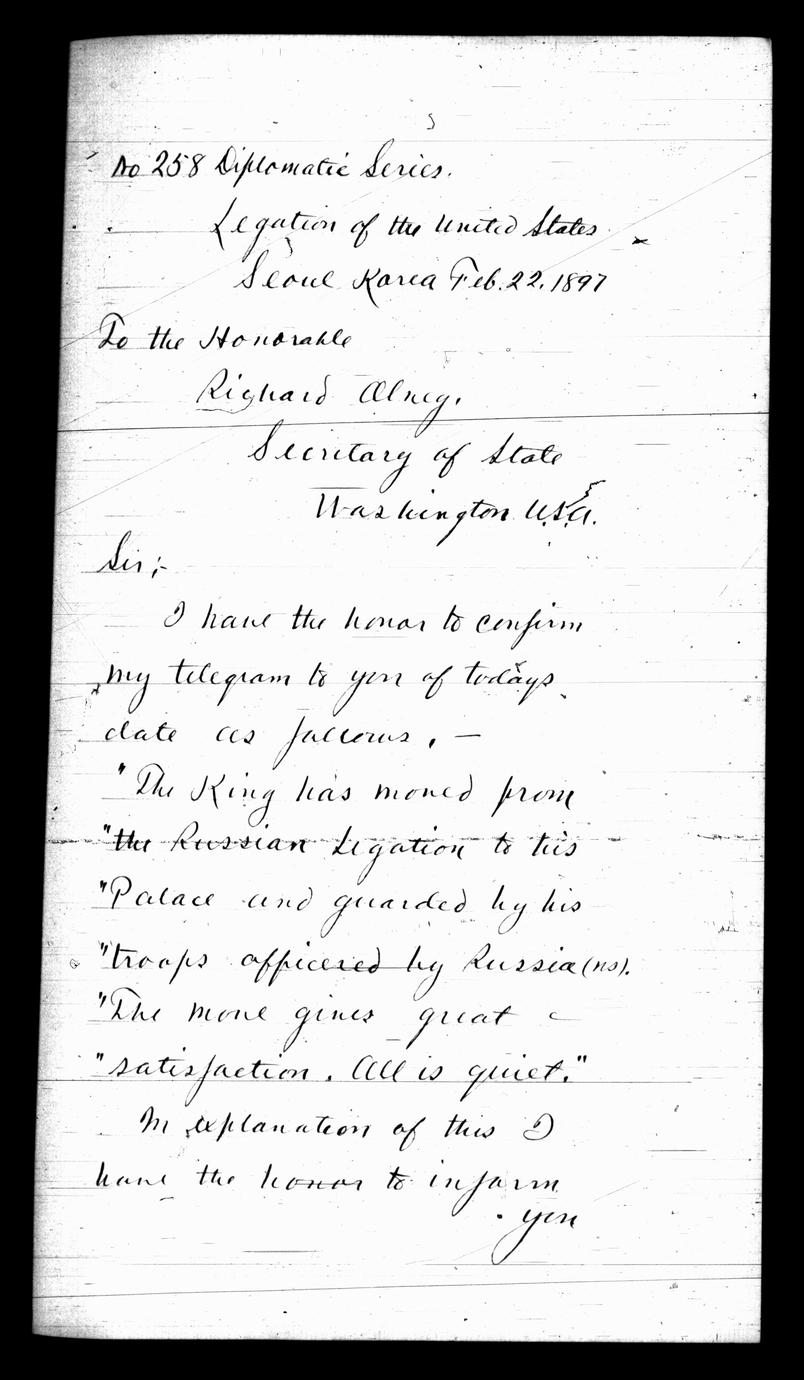 No 258 Diplomatic Series.
Legation of the United States
Seoul Korea Feb. 22. 1897
To the Honorable
Richard Olney,
Secretary of State
Washington U.S.A.
Sir;-
I have the honor to confirm
my telegram to you of todays
date as follows, —
"The King has moved from
"the Russian Legation to his
"Palace and guarded by his
"troops officered by Russia(ns).
"The move gives great
"satisfaction. All is quiet."
In explanation of this I
have the honor to inform
you